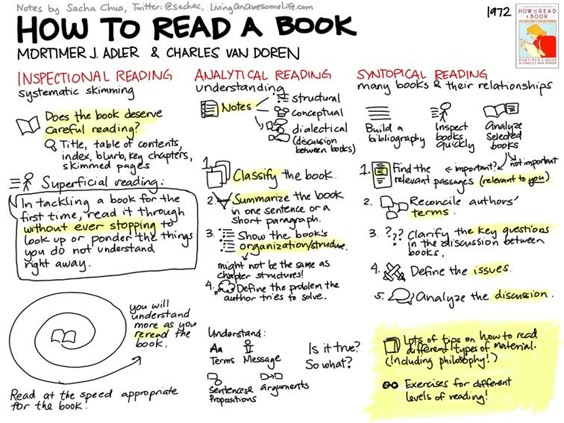 Notes by Sacha Chua, Twitter: @sachac, LivingAnAwesomeLife.com
HOW TO READ A BOOK
MORTIMER J. ADLER & CHARLES VAN DOREN
1972
HOW TO READ
A BOOK
INSPECTIONAL READING
systematic skimming
Does the book deserve
careful reading?
Title, table of contents,
index, blurb, key chapters,
skimmed pages
Superficial reading:
In tackling a book for the
first time, read it through
without ever stopping to
look up or ponder the things
you do not understand
right away.
you will
understand
more as you
reread the
book.
Read at the speed appropriate
for the book.
ANALYTICAL READING
understanding
Notes
structural
conceptual
dialectical
(discussion
between books)
1. Classify the book.
2. Summarize the book
in one sentence or a
short paragraph.
3. Show the book's
organization/structure.
might not be the same as
chapter structures!
4. Define the problem the
author tries to solve.
Understand:
Aa
Terms Message
Sentences arguments
Propositions
Is it true?
So what?
SYNTOPICAL READING
many books & their relationships
Build a
bibliography
Inspect
books
quickly
Analyze
selected
books
1. Find the
relevant passages
← important?
not important
(relevant to you)
2. Reconcile authors'
terms.
3. ??? Clarify the key questions
in the discussion between
books.
4. Define the issues.
5. Analyze the discussion.
Lots of tips on how to read
different types of material.
(Including philosophy!)
Exercises for different
levels of reading!